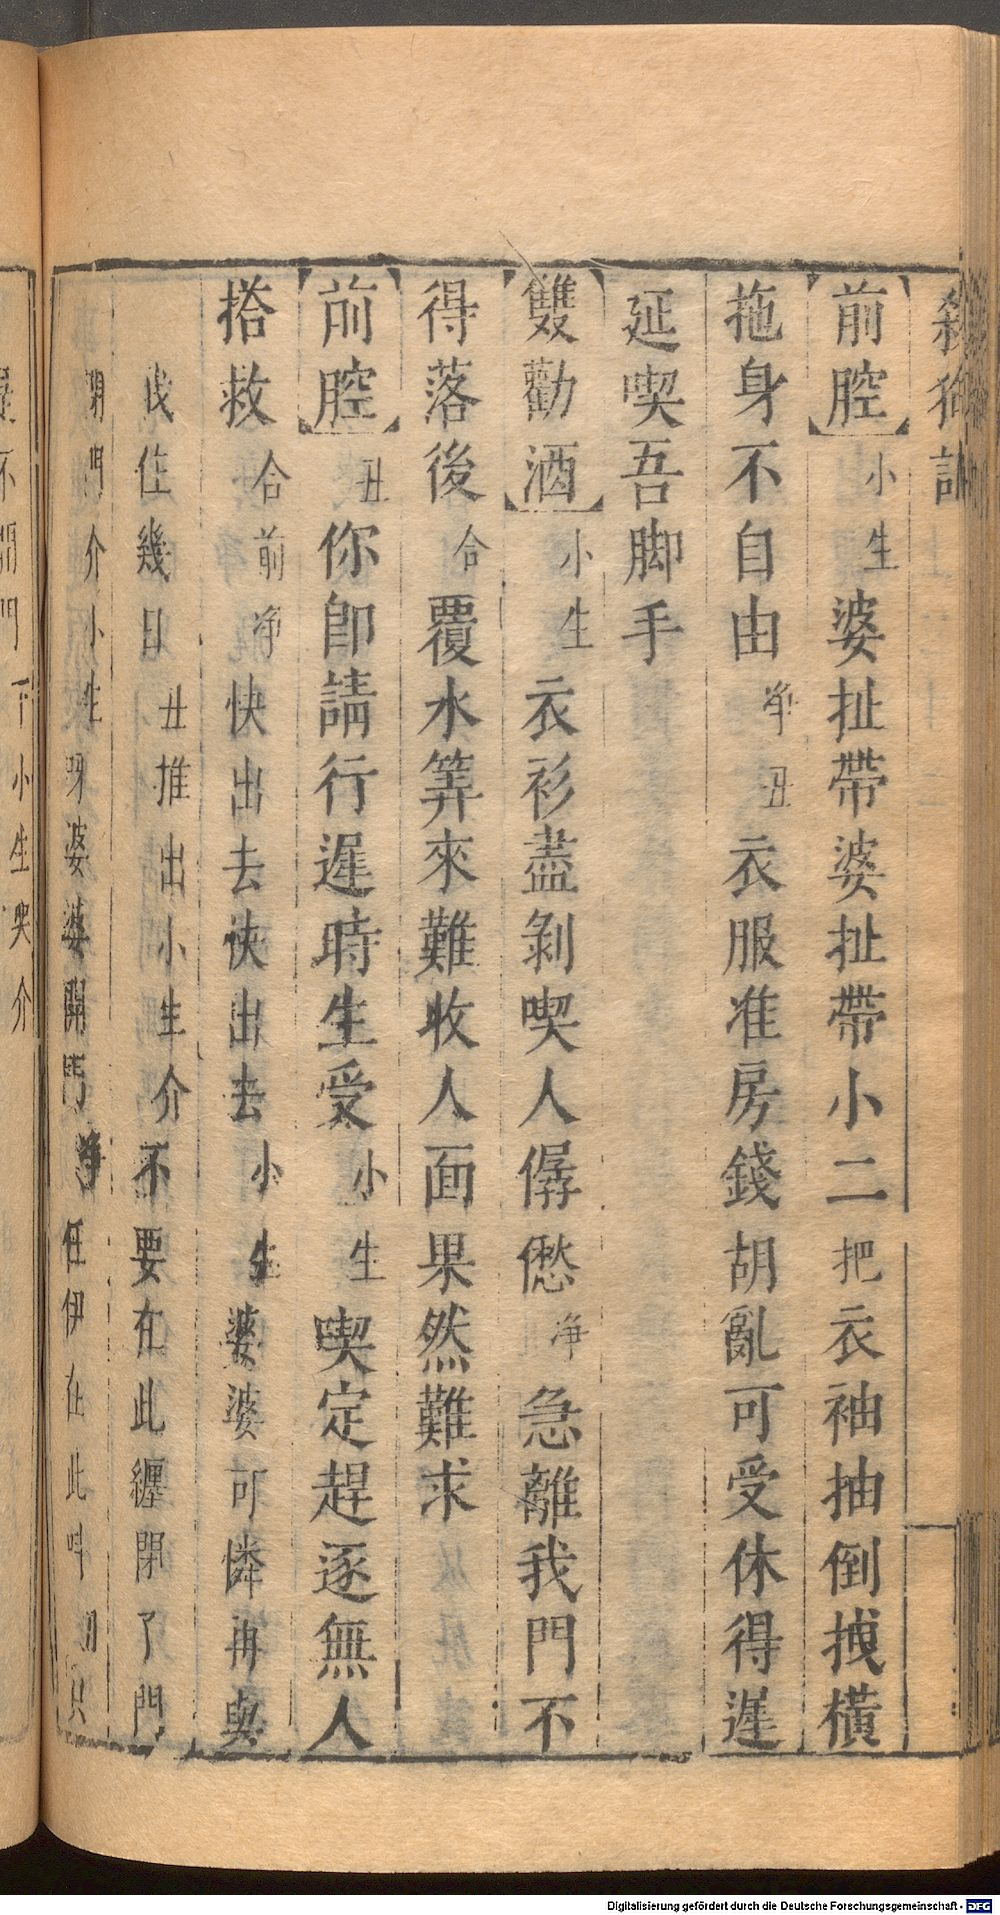 殺狗記
前腔小生婆扯帶婆扯帶小二把衣袖抽倒拽橫
拖身不自由淨丑衣服准房錢胡亂可受休得遲
延喫吾脚手
雙勸酒小生衣衫盡剝喫人僝僽淨急離我門不
得落後合覆水筭來難收人面果然難求
前腔丑你卽請行遲時生受小生喫定趕逐無人
搭救合前淨快出去快出去小生婆婆可憐再與
我住幾日丑推出小生介不要在此纏閉了門
閉門介小生呀婆婆開門淨任伊在此呌
不開門下小生哭介
Digitalisierung gefördert durch die Deutsche Forschungsgemeinschaft - DFG